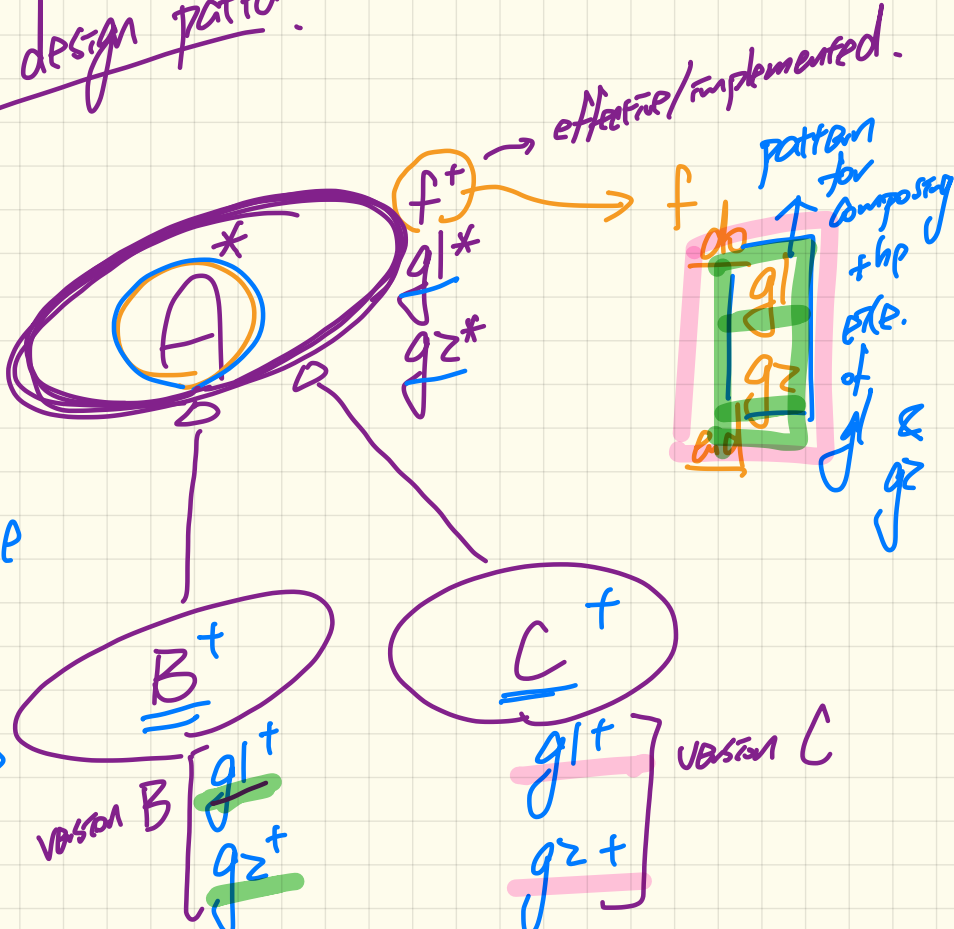 design
effective/implemented.
f+
f
A*
g1*
g2*
do
g1
g2
end
pattern
for
composing
the
of
g1 &
g2
B+
C+
version B
g1+
g2+
g1+
g2+
version C